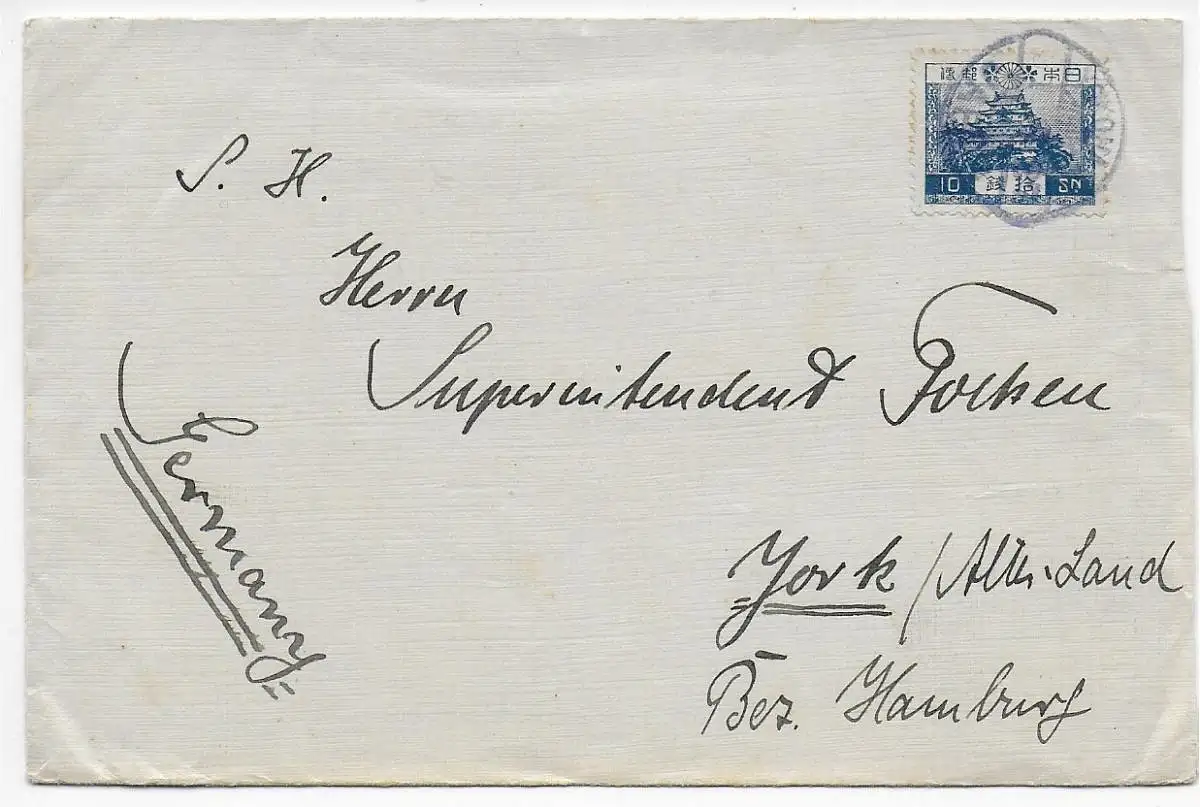 日本郵便
10 拾銭 SN
S. H.
Herrn
Superintendent Focken
York / Altes-Land
Bez. Hamburg
Germany